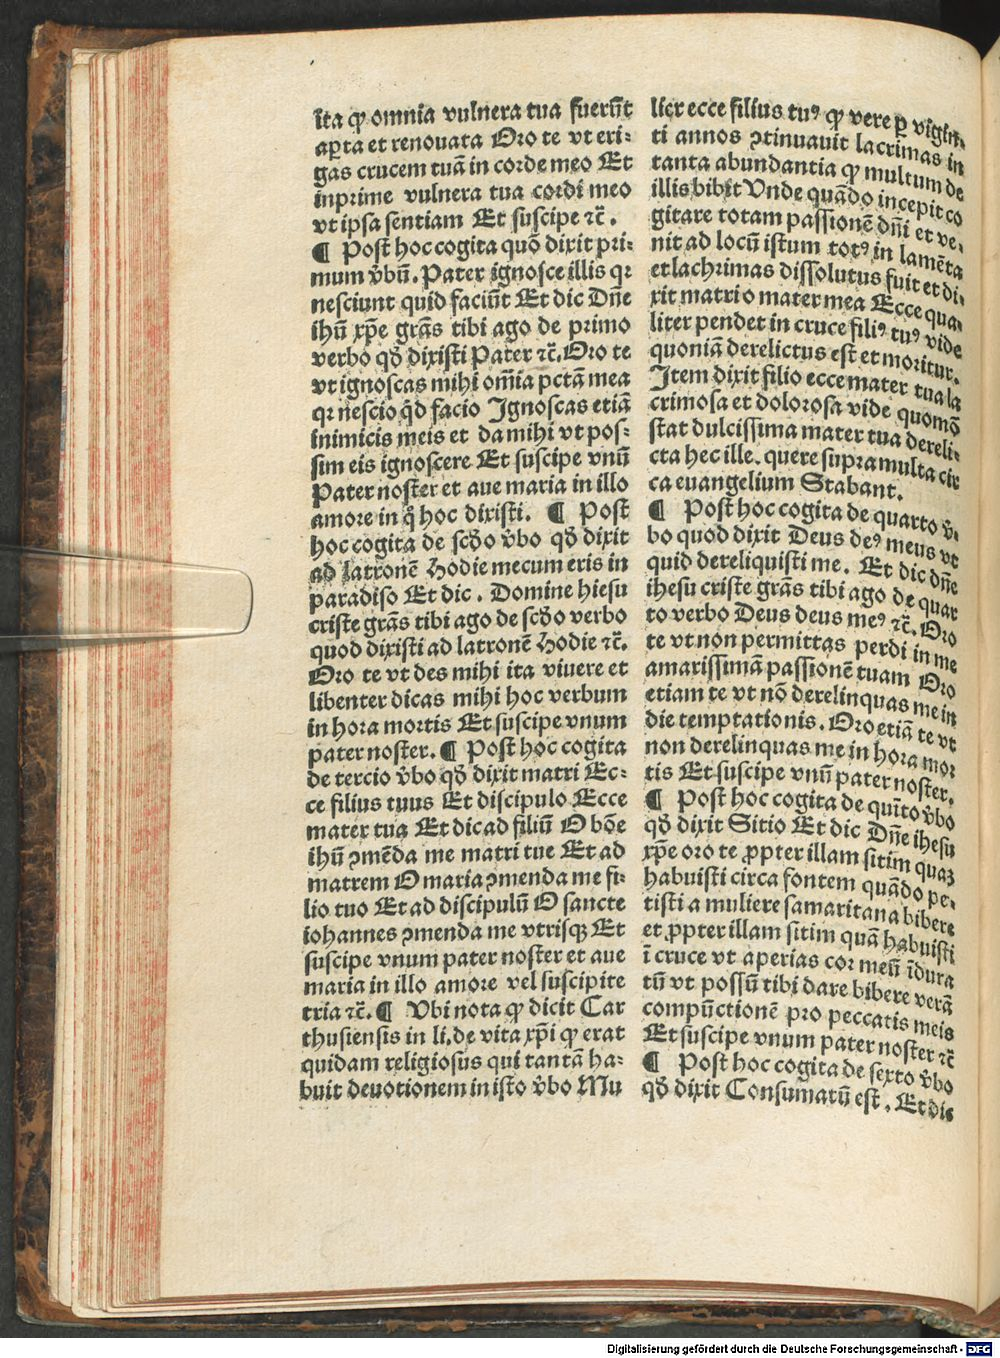 ita ꝙ omnia vulnera tua fuerūt
aꝑta et renouata Oro te vt eri-
gas crucem tuā in corde meo Et
inprime vulnera tua cordi meo
vt ipsa sentiam Et suscipe ꝛc̄.
¶ Post hoc cogita quō dixit pri-
mum v̄bū. Pater ignosce illis qꝛ
nesciunt quid faciūt Et dic Dn̄e
ihū xp̄e grās tibi ago de primo
verbo qd̄ dixisti Pater ꝛc̄. Oro te
vt ignoscas mihi om̄ia pctā mea
qꝛ nescio qd̄ facio Ignoscas etiā
inimicis meis et da mihi vt pos-
sim eis ignoscere Et suscipe vnū
Pater noster et aue maria in illo
amore in q̄ hoc dixisti. ¶ Post
hoc cogita de scd̄o v̄bo qd̄ dixit
ad latronē Hodie mecum eris in
paradiso Et dic. Domine hiesu
criste grās tibi ago de scd̄o verbo
quod dixisti ad latronē Hodie ꝛc̄.
Oro te vt des mihi ita viuere et
libenter dicas mihi hoc verbum
in hora mortis Et suscipe vnum
pater noster. ¶ Post hoc cogita
de tercio v̄bo qd̄ dixit matri Ec-
ce filius tuus Et discipulo Ecce
mater tua Et dic ad filiū O bōe
ihū ꝯmēda me matri tue Et ad
matrem O maria ꝯmenda me fi-
lio tuo Et ad discipulū O sancte
iohannes ꝯmenda me vtrisqꝫ Et
suscipe vnum pater noster et aue
maria in illo amore vel suscipite
tria ꝛc̄. ¶ Vbi nota ꝙ dicit Car
thusiensis in li. de vita xp̄i ꝙ erat
quidam religiosus qui tantā ha-
buit deuotionem in isto v̄bo Mu
licr ecce filius tuꝰ ꝙ vere ꝑ vigin-
ti annos ꝯtinuauit lacrimas in
tanta abundantia ꝙ multum de
illis bibit Vnde quādo incepit co
gitare totam passionē dn̄i et ve-
nit ad locū istum totꝰ in lamēta
et lachrimas dissolutus fuit et di-
xit matri o mater mea Ecce qua-
liter pendet in cruce filiꝰ tuꝰ vide
quoniā derelictus est et moritur.
Item dixit filio ecce mater tua la
crimosa et dolorosa vide quomō
stat dulcissima mater tua dereli-
cta hec ille. quere supra multa cir
ca euangelium Stabant.
¶ Post hoc cogita de quarto v̄-
bo quod dixit Deus deꝰ meus vt
quid dereliquisti me. Et dic dn̄e
ihesu criste grās tibi ago de quar
to verbo Deus deus meꝰ ꝛc̄. Oro
te vt non permittas perdi in me
amarissimā passionē tuam Oro
etiam te vt nō derelinquas me in
die temptationis. Oro etiā te vt
non derelinquas me in hora mor
tis Et suscipe vnū pater noster.
¶ Post hoc cogita de quīto v̄bo
qd̄ dixit Sitio Et dic Dn̄e ihesu
xp̄e oro te ꝓpter illam sitim quaꝫ
habuisti circa fontem quādo pe-
tisti a muliere samaritana bibere
et ꝓpter illam sitim quā habuisti
ī cruce vt aperias cor meū īdura
tū vt possū tibi dare bibere verā
compūctionē pro peccatis meis
Et suscipe vnum pater noster ꝛc̄
¶ Post hoc cogita de sexto v̄bo
qd̄ dixit Consumatū est. Et dic
Digitalisierung gefördert durch die Deutsche Forschungsgemeinschaft - DFG